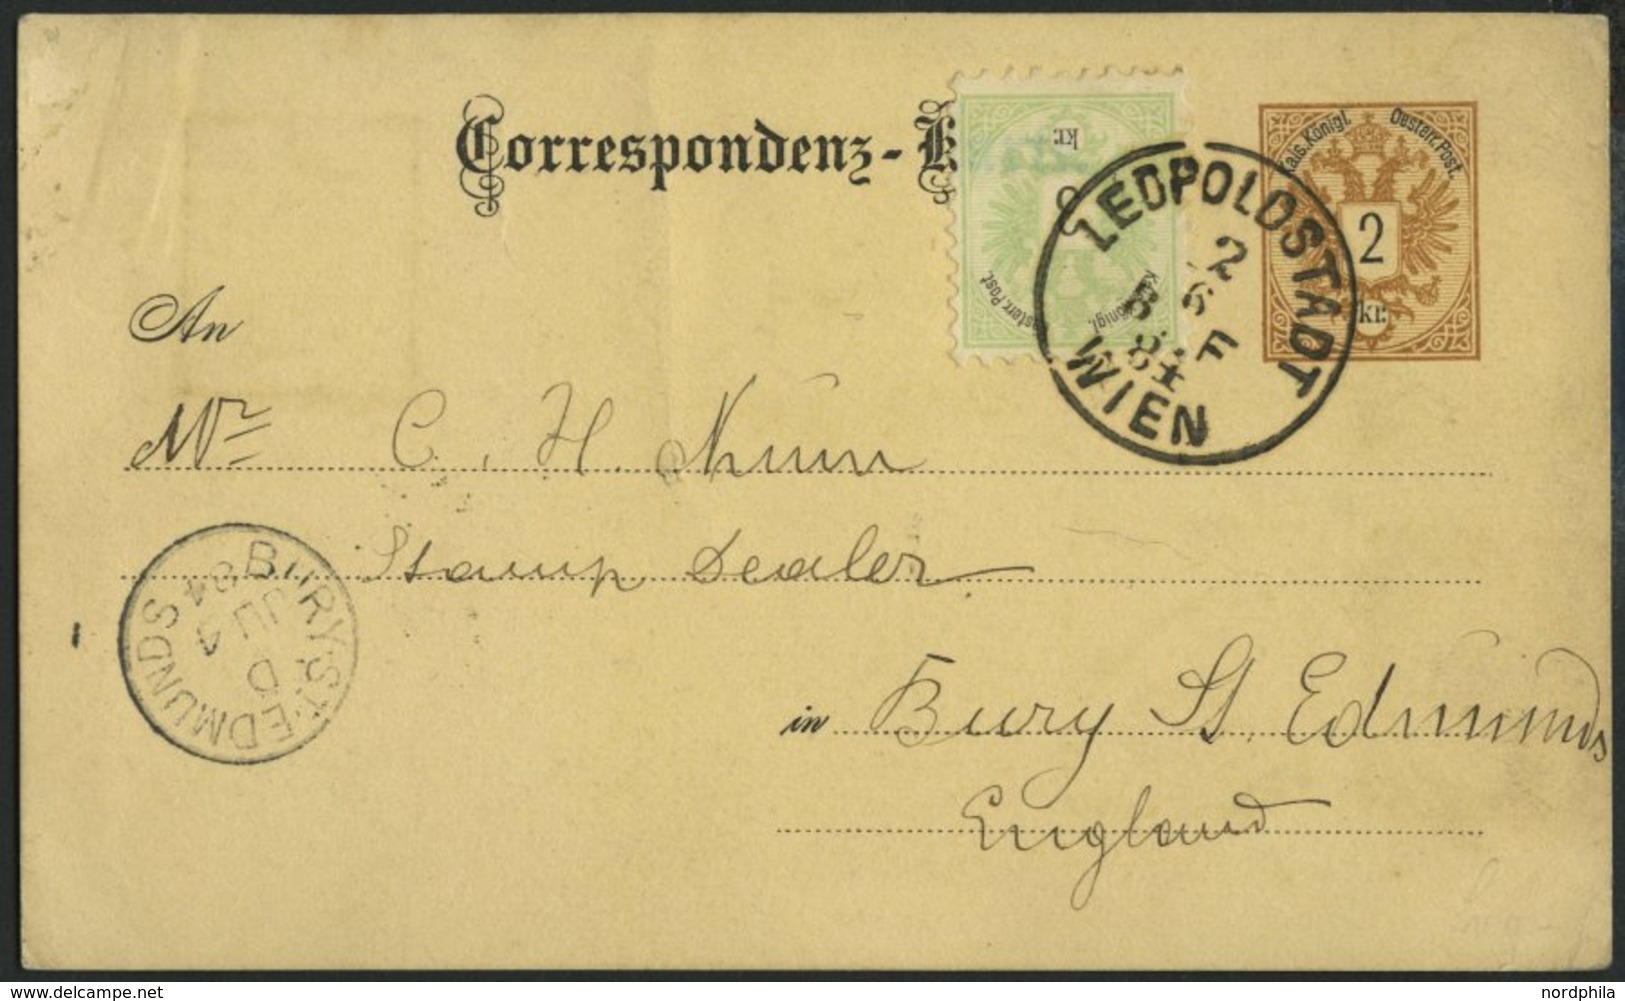 Correspondenz-K
kr.
Kais. Königl. Oesterr. Post.
2
kr.
LEOPOLDSTADT
2
84 F
WIEN
An
Mr C. H. Nunn
Stamp Dealer
BURY·ST·EDMUNDS
D
JU 4
84
in Bury St. Edmunds
England
www.delcampe.net
nordphila